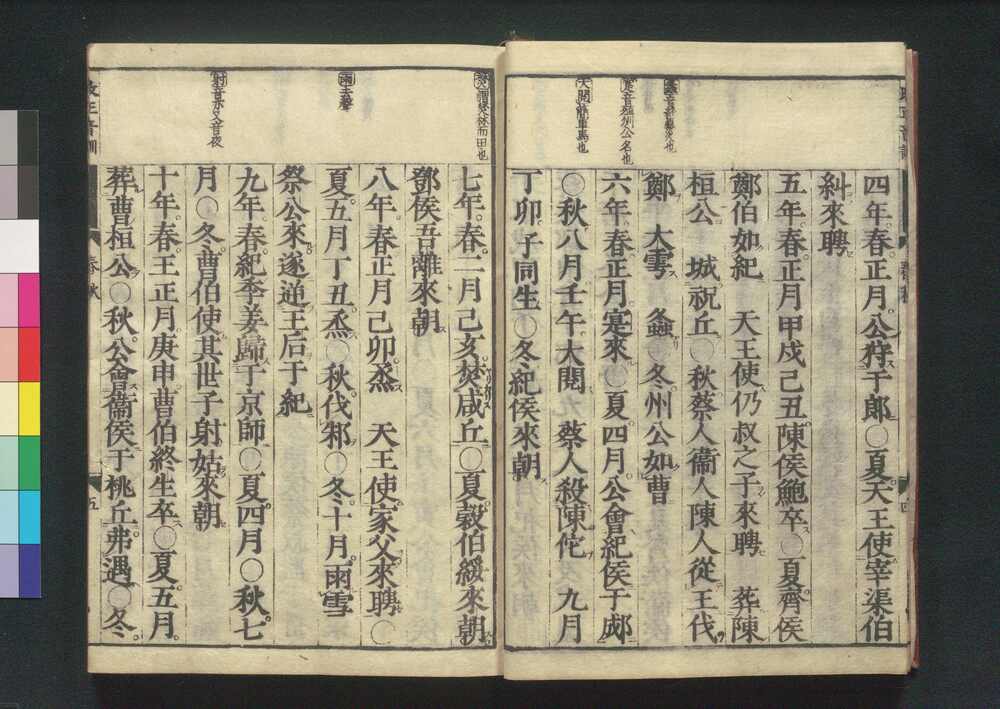 四年春正月公狩于郎○夏天王使宰渠伯
糾來聘
五年春正月甲戌己丑陳侯鮑卒○夏齊侯
鄭伯如紀 天王使仍叔之子來聘 葬陳
桓公 城祝丘○秋蔡人衞人陳人從王伐
鄭 大雩 螽○冬州公如曹
六年春正月寔來○夏四月公會紀侯于郕
○秋八月壬午大閱 蔡人殺陳佗 九月
丁卯子同生○冬紀侯來朝
大閱簡車馬也
春秋
七年春二月己亥焚咸丘○夏穀伯綏來朝
鄧侯吾離來朝
八年春正月己卯烝 天王使家父來聘○
夏五月丁丑烝○秋伐邾○冬十月雨雪
祭公來遂逆王后于紀
九年春紀季姜歸于京師○夏四月○秋七
月○冬曹伯使其世子射姑來朝
十年春王正月庚申曹伯終生卒○夏五月
葬曹桓公○秋公會衞侯于桃丘弗遇○冬
雨去聲
射音亦又音夜
春秋
五